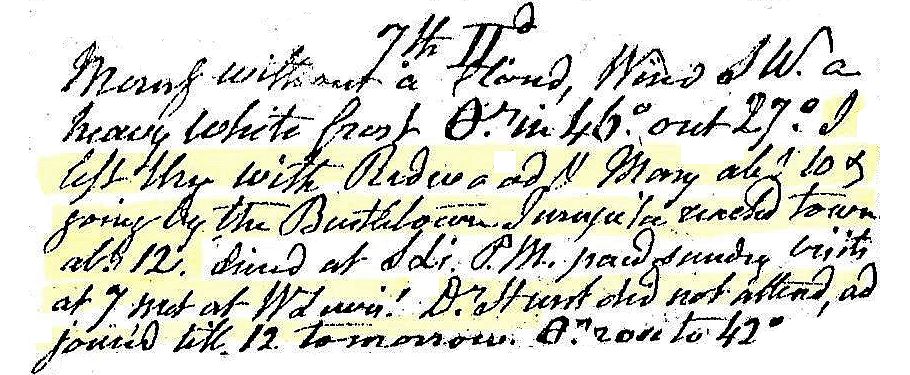 7th II^d
Morng without a Cloud, Wind SW. a
heavy white frost θ^r in 46° out 27° I
left thy with Redwood & Mary abt 10 &
going by the Burtletown Turnpike reached town
abt 12. dined at SLs. P.M. paid sundry visits
at 7 met at W Lewis' Dr Hunt did not attend, ad
journ'd till 12 tomorrow. θ^r rose to 42°